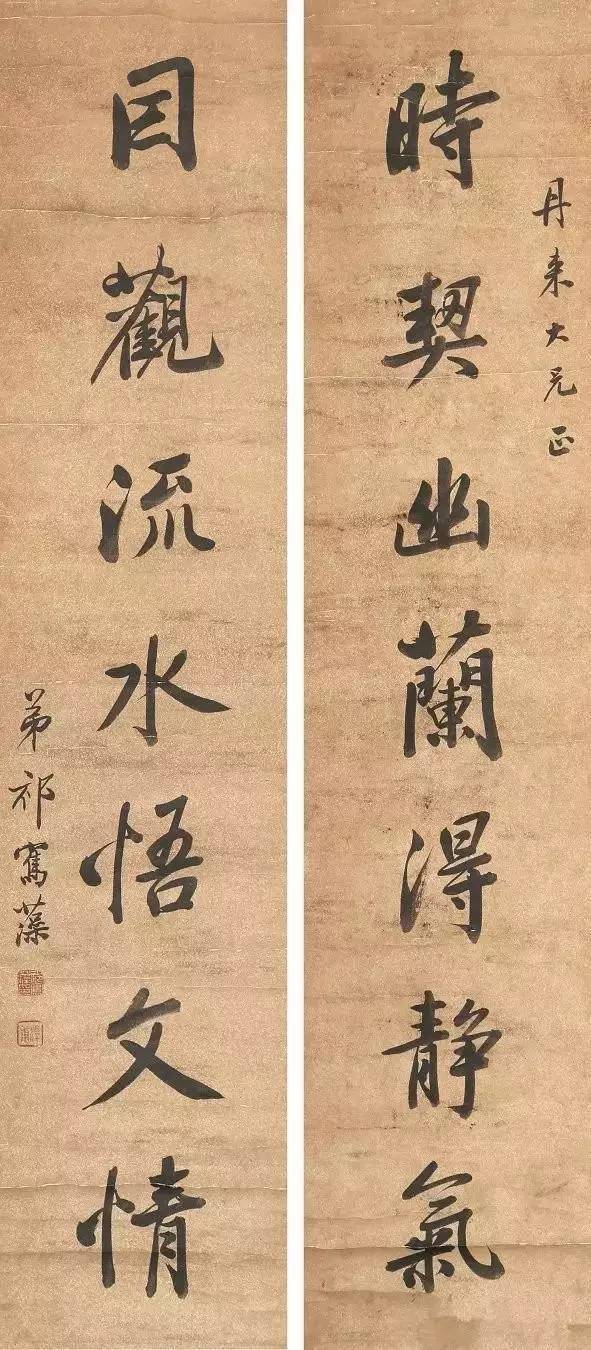 丹来大兄正
時契幽蘭得静氣
因觀流水悟文情
弟祁寯藻